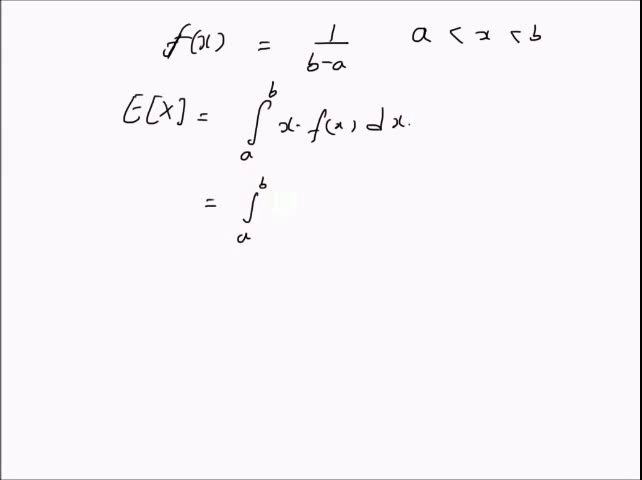 f(x) = 1/(b-a) a < x < b
E[X] = ∫_a^b x· f(x) dx.
= ∫_a^b